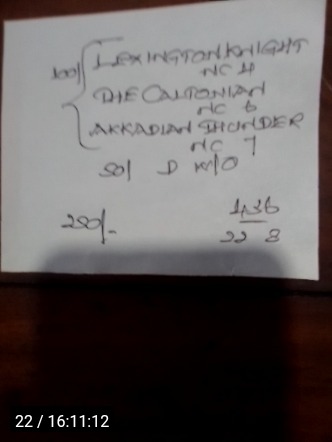 100/ LEXINGTON KNIGHT
NC 4
THE CALTONIAN
NC 6
AKKADIAN THUNDER
NC 7
50/ D W/O
250/-
436
22 8
22 / 16:11:12